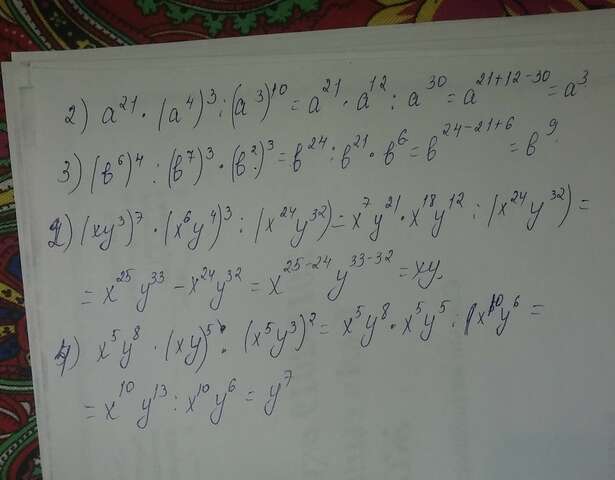 2) a²¹ · (a⁴)³ : (a³)¹⁰ = a²¹ · a¹² : a³⁰ = a²¹⁺¹²⁻³⁰ = a³
3) (b⁶)⁴ : (b⁷)³ · (b²)³ = b²⁴ : b²¹ · b⁶ = b²⁴⁻²¹⁺⁶ = b⁹
2) (xy³)⁷ · (x⁶y⁴)³ : (x²⁴y³²) = x⁷y²¹ · x¹⁸y¹² : (x²⁴y³²) =
= x²⁵y³³ − x²⁴y³² = x²⁵⁻²⁴y³³⁻³² = xy,
4) x⁵y⁸ · (xy)⁵ : (x⁵y³)² = x⁵y⁸ · x⁵y⁵ : (x¹⁰y⁶ =
= x¹⁰y¹³ : x¹⁰y⁶ = y⁷